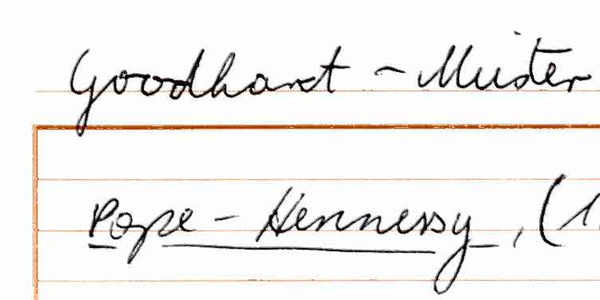 Goodhart - Muster
Pope - Hennessy, (1